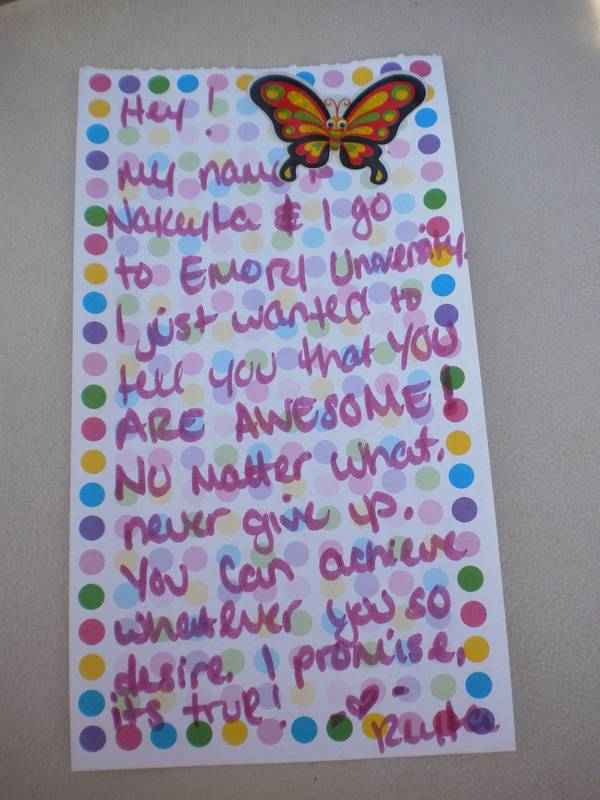 Hey!
My name is
Nakeyla & I go
to Emory University.
I just wanted to
tell you that YOU
ARE AWESOME!
No matter what,
never give up.
You can achieve
whatever you so
desire. I promise,
its true!